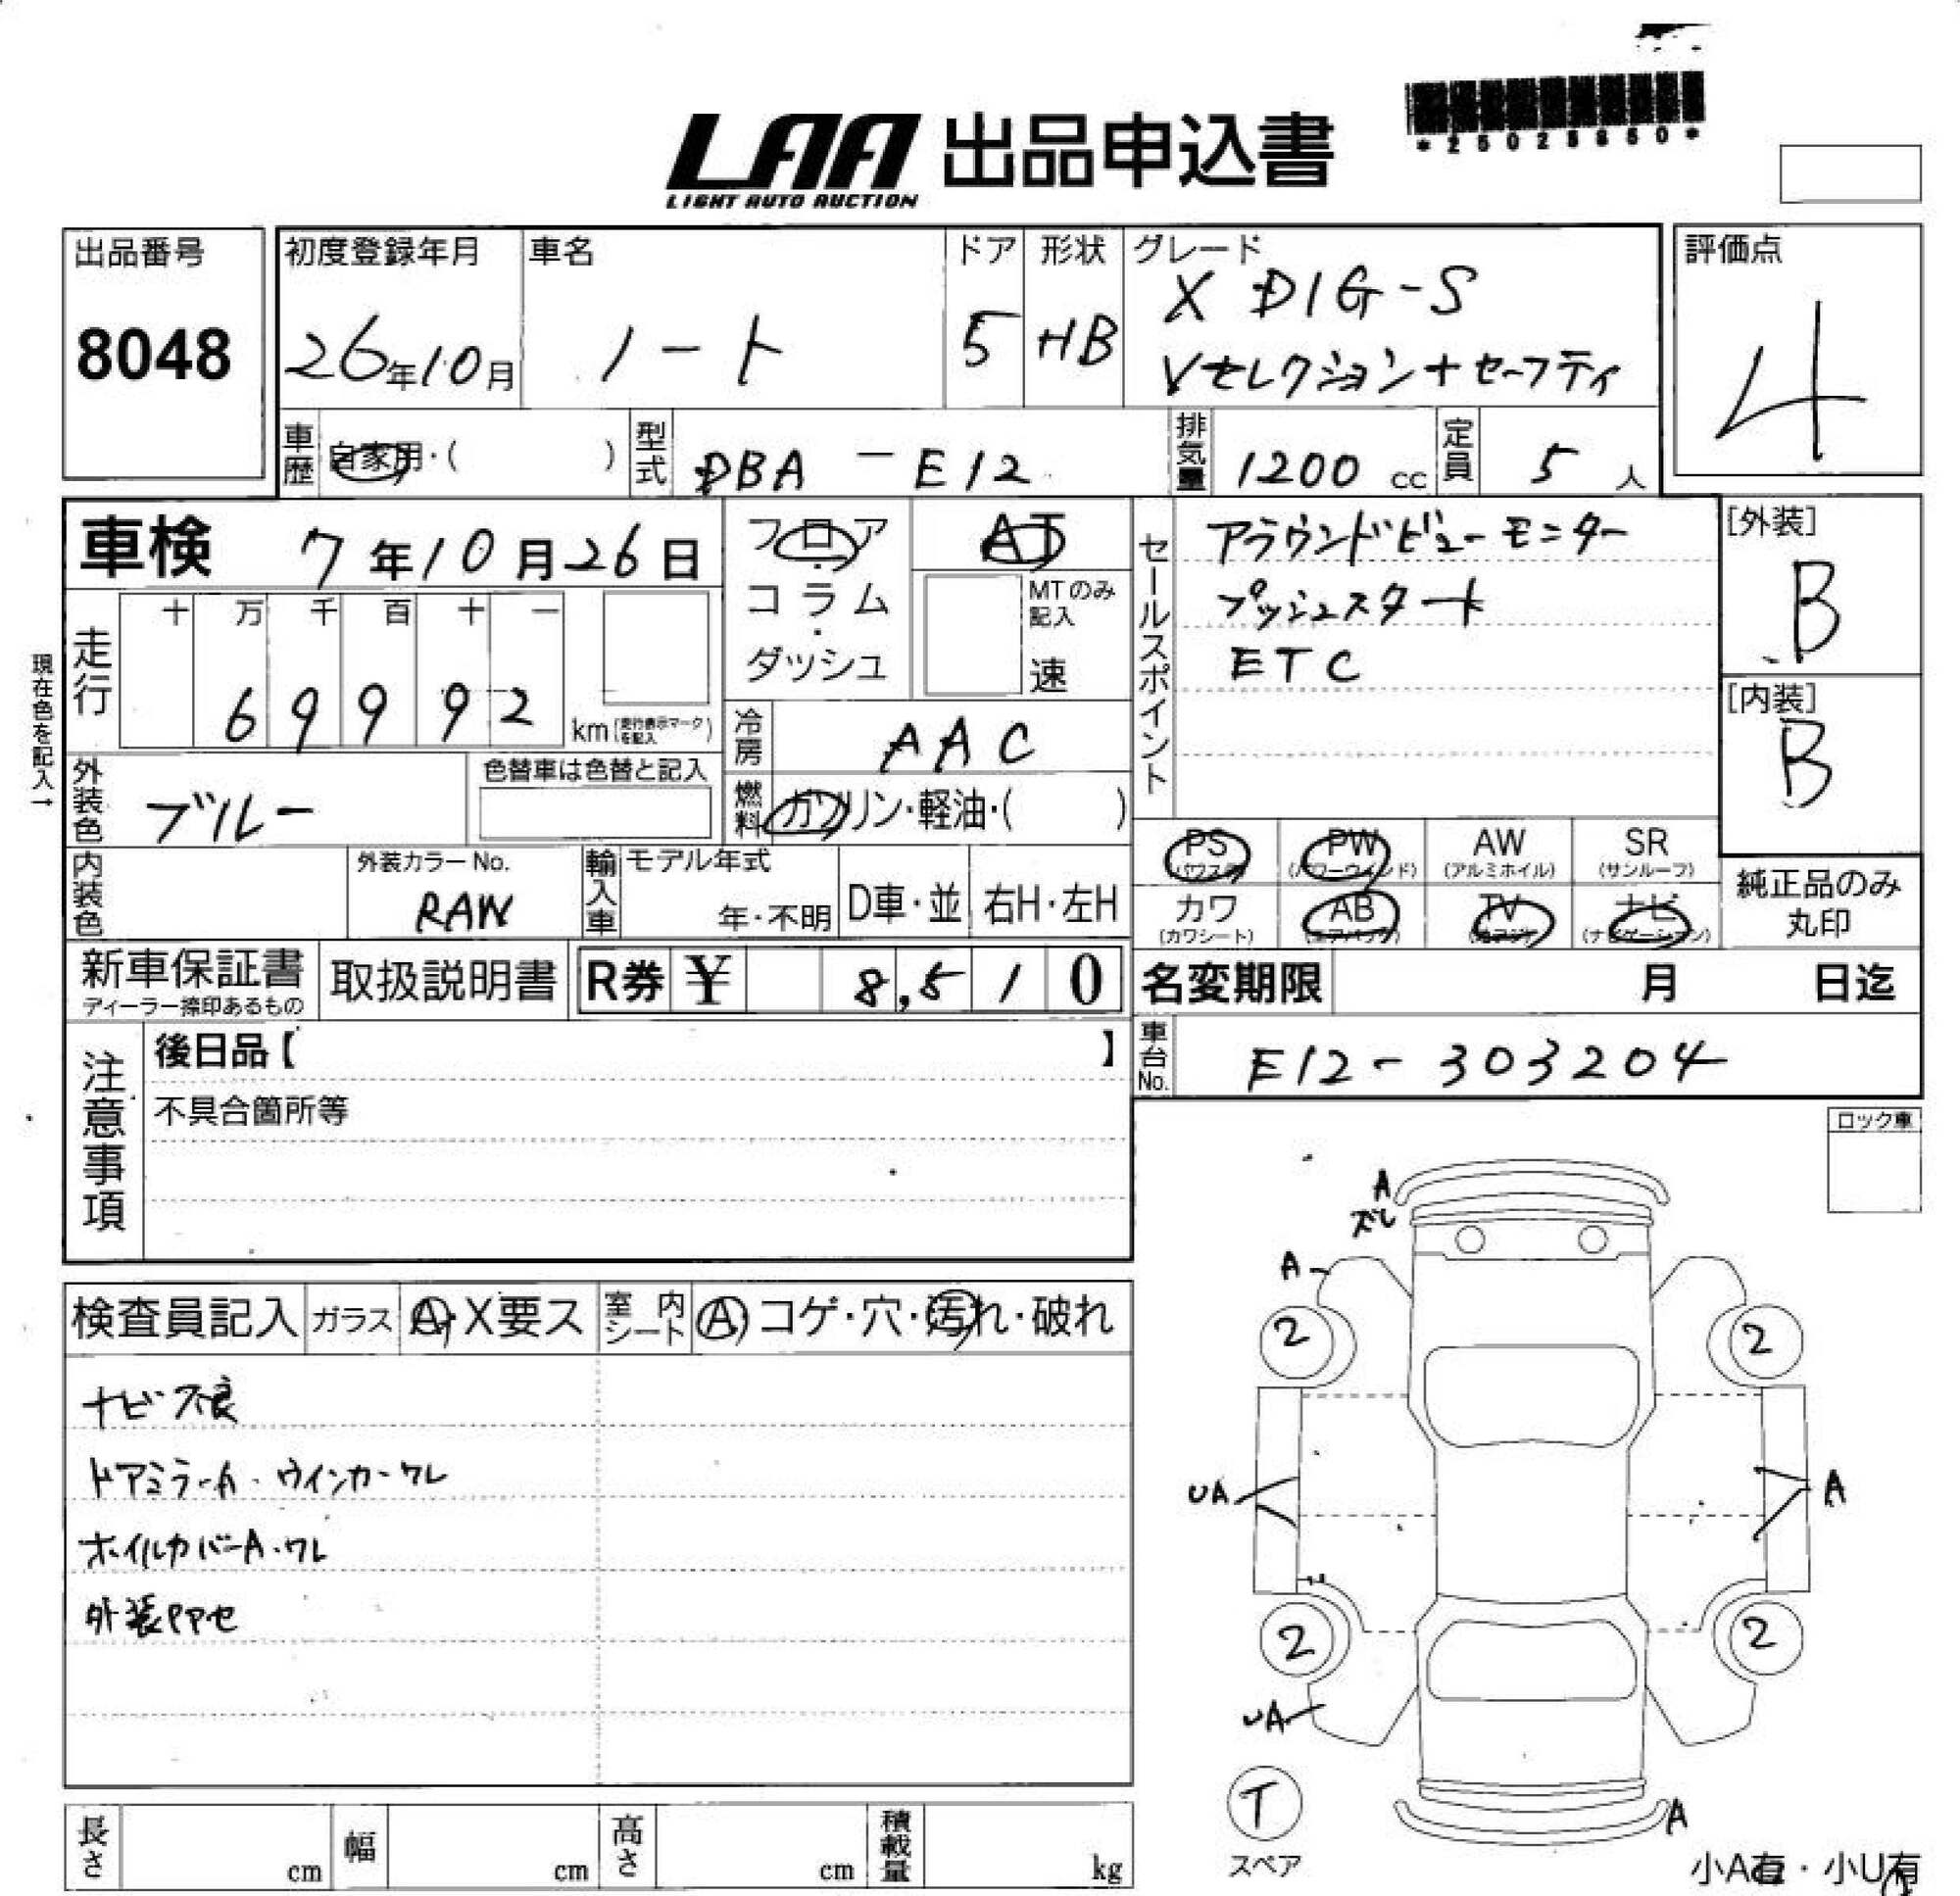 LAA 出品申込書
LIGHT AUTO AUCTION
出品番号
8048
初度登録年月
26年10月
車名
ノート
ドア
5
形状
HB
グレード
X DIG-S
Vセレクション+セーフティ
評価点
4
車歴 自家用・( )
型式 DBA-E12
排気量 1200 cc
定員 5 人
車検 7年10月26日
フロア・コラム・ダッシュ
AT
MTのみ記入
速
走行
十 万 千 百 十 一
6 9 9 9 2 km(走行表示マークを記入)
現在色を記入→
外装色 ブルー
色替車は色替と記入
冷房 AAC
燃料 ガソリン・軽油・( )
セールスポイント
アラウンドビューモニター
プッシュスタート
ETC
[外装]
B
[内装]
B
PS (パワステ)
PW (パワーウインド)
AW (アルミホイル)
SR (サンルーフ)
カワ (カワシート)
AB (エアバック)
TV
ナビ (ナビゲーション)
純正品のみ
丸印
内装色
外装カラーNo.
RAW
輸入車
モデル年式
年・不明
D車・並
右H・左H
新車保証書
ディーラー捺印あるもの
取扱説明書
R券 ¥ 8,510
名変期限 月 日迄
車台No. E12-303204
注意事項
後日品【 】
不具合箇所等
ロック車
検査員記入
ガラス A・X要ス
室内シート A コゲ・穴・汚れ・破れ
ナビ不良
ドアミラーA・ウインカーワレ
ホイルカバーA・ワレ
外装PPセ
A
ズレ
A
2
2
UA
A
2
2
UA
T
スペア
A
小A有・小U有
長さ cm
幅 cm
高さ cm
積載量 kg